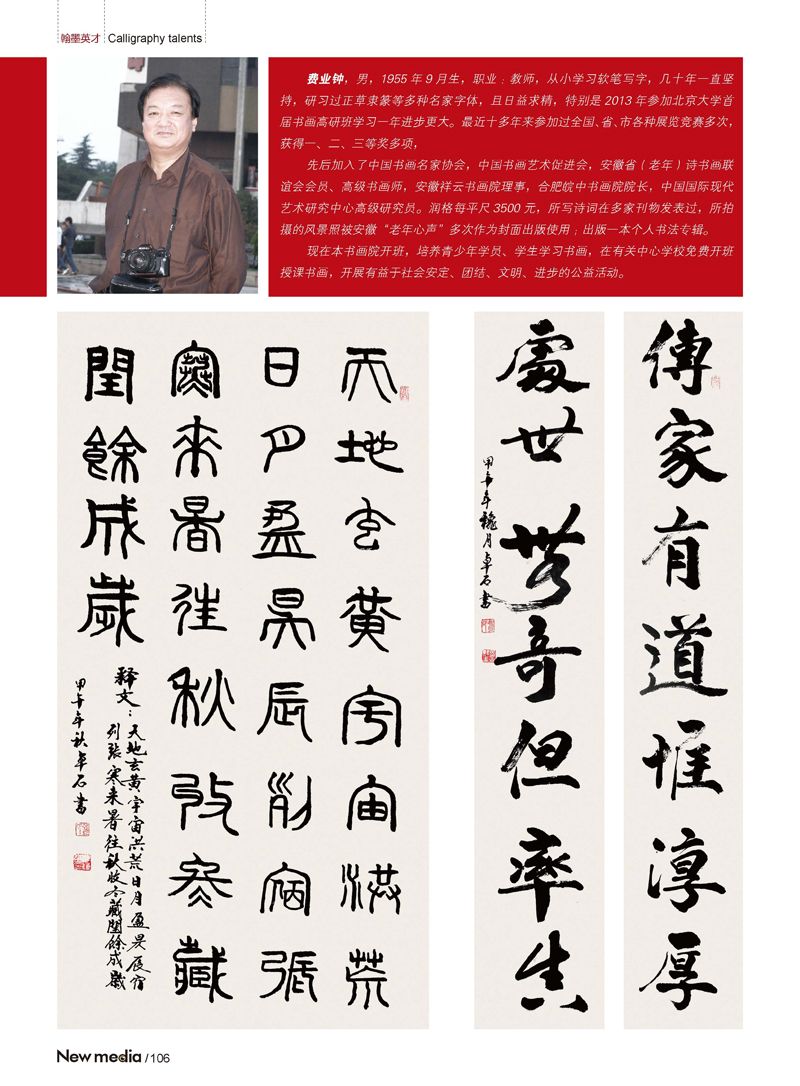 翰墨英才 Calligraphy talents
费业钟，男，1955 年 9 月生，职业：教师，从小学习软笔写字，几十年一直坚
持，研习过正草隶篆等多种名家字体，且日益求精，特别是 2013 年参加北京大学首
届书画高研班学习一年进步更大。最近十多年来参加过全国、省、市各种展览竞赛多次，
获得一、二、三等奖多项，
先后加入了中国书画名家协会，中国书画艺术促进会，安徽省（老年）诗书画联
谊会会员、高级书画师，安徽祥云书画院理事，合肥皖中书画院院长，中国国际现代
艺术研究中心高级研究员。润格每平尺 3500 元，所写诗词在多家刊物发表过，所拍
摄的风景照被安徽“老年心声”多次作为封面出版使用；出版一本个人书法专辑。
现在本书画院开班，培养青少年学员、学生学习书画，在有关中心学校免费开班
授课书画，开展有益于社会安定、团结、文明、进步的公益活动。
傳家有道惟淳厚
處世无奇但率真
甲午年秋月卓石書
天地玄黄宇宙洪荒
日月盈昃辰宿列張
寒来暑往秋收冬藏
閏餘成歲
释文：天地玄黄宇宙洪荒日月盈昃辰宿
列張寒来暑往秋收冬藏閏餘成歲
甲午年秋卓石書
New media / 106